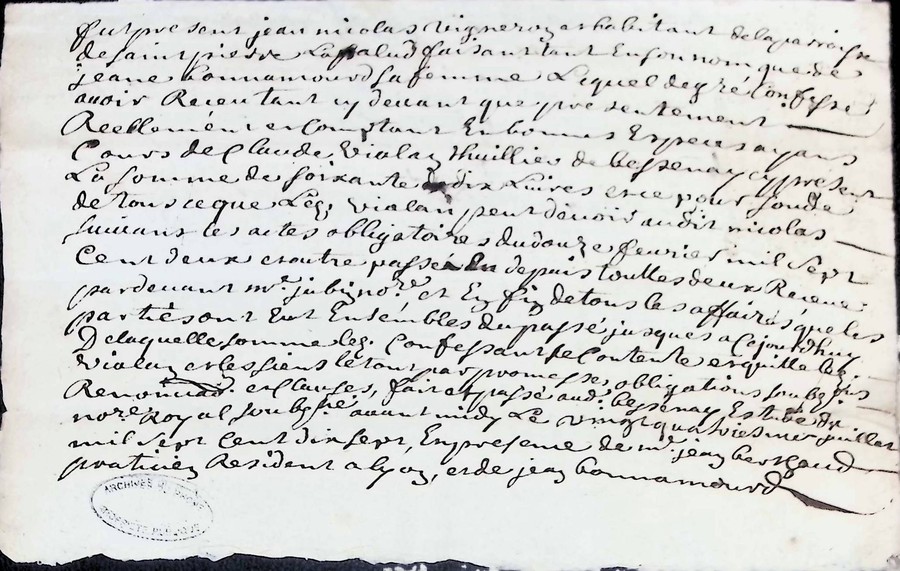 fut present jean nicolas vigneron et habitant de la parroisse
de saint pierre Lapalud faisant tant En son nom que de
jeane bonnamourd sa femme Lequel de gré Confesse
avoir Receu tant cy devant que presentement
Reellement et Comptant En bonnes Especes ayans
Cours de Claude Vialan thuillier de bessenay cy present
La somme de soixante dix Livres et ce pour solde
de tout ce que Led. vialan peut devoir audit nicolas
suivans les actes obligatoires du douze feuvrier mil sept
Cent deux et autre passé depuis touttes deux Receues
pardevant me. jubin nore. et En fin de tous les affaires que les
partiés ont Eut Ensembles du passé jusques a Cejourdhuy
De laquelle somme led. Confessant se Contente et quitte led.
Vialan et les siens le tout par promesses obligations soubzmis
Renonciaõ. et Clauses, fait et passé audit bessenay Estude du
nore. Royal soubzné. avant midy Le vingt quatriesme juillet
mil sept Cent dix sept, En presence de mr. jean berthaud
praticien Resident a lyon, et de jean bonnamourd
ARCHIVES DU RHONE